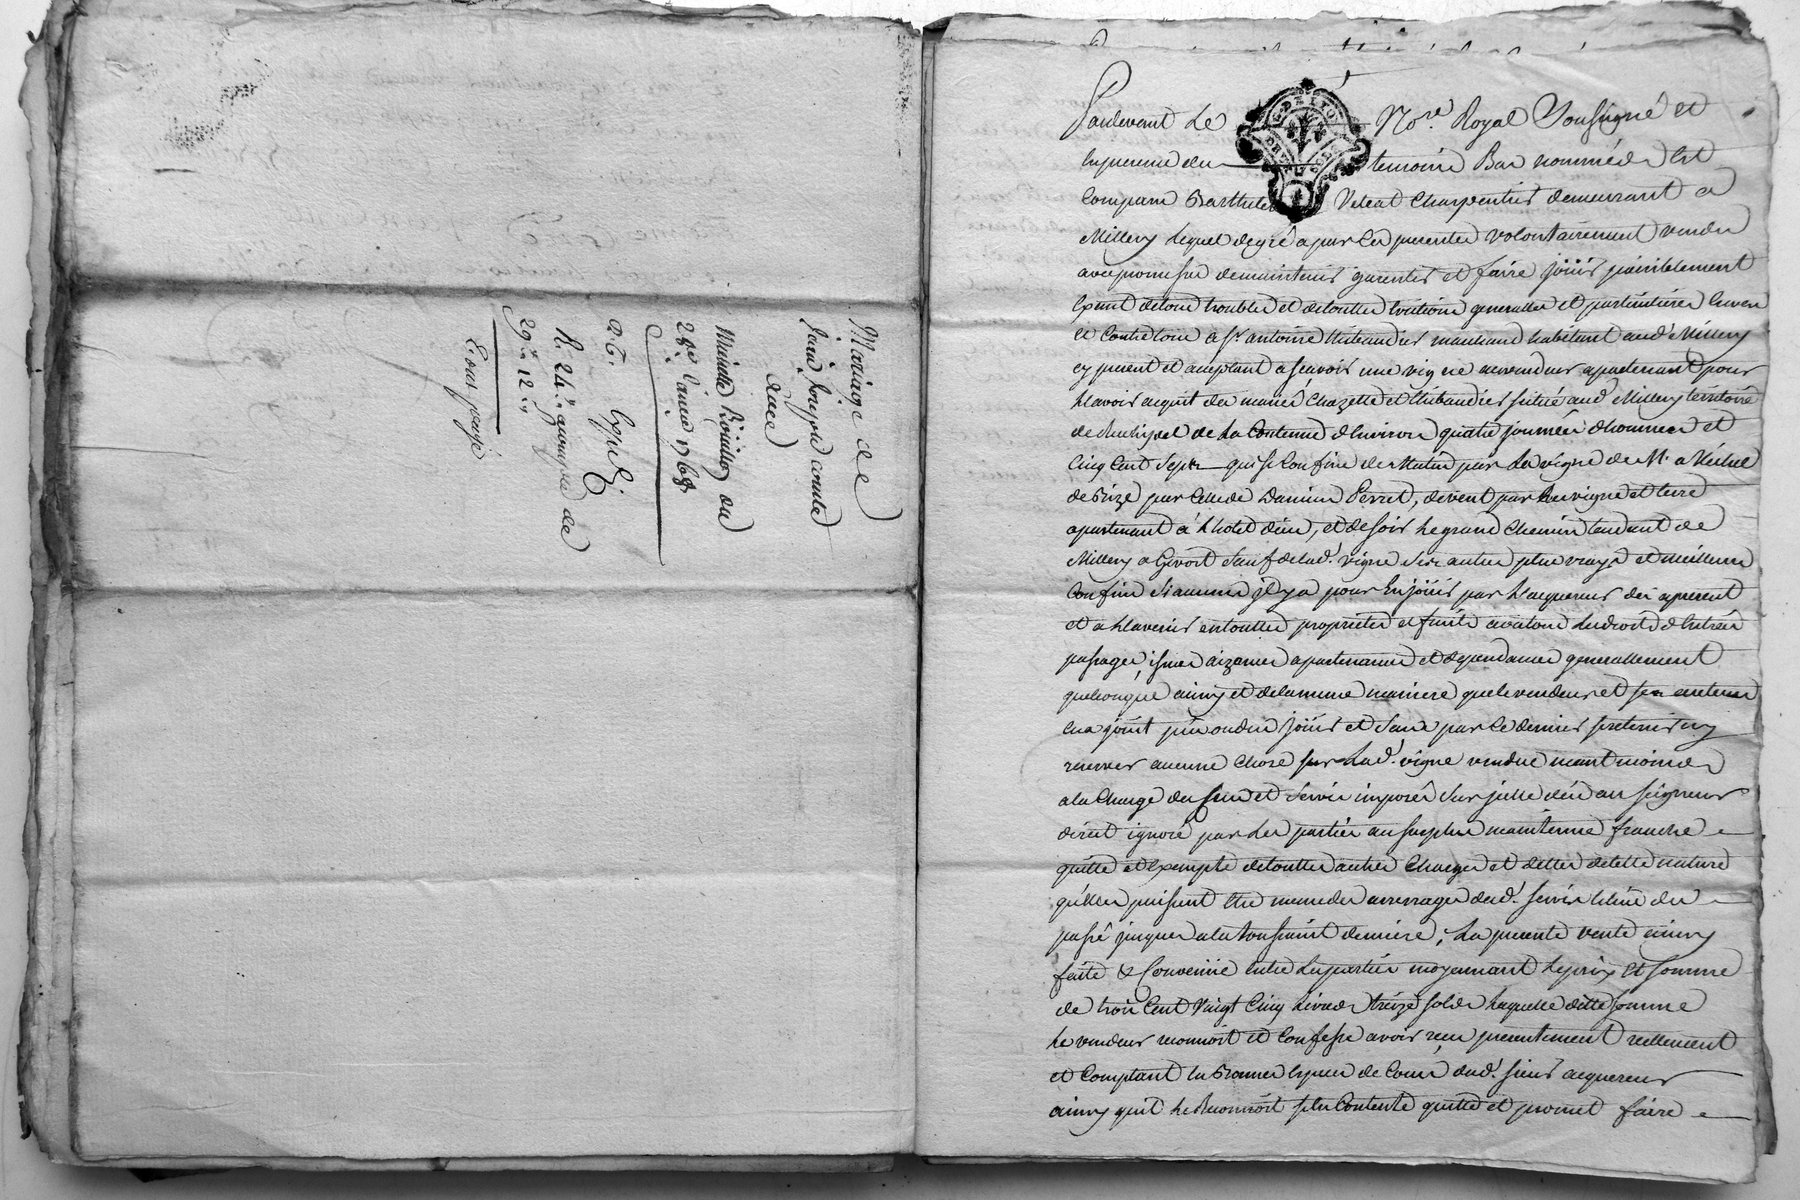 Mariage de
Jean joseph comte
Minutte du
28e Janvier 1768
Expedié
R. 24.
29. 12.
Pardevant Le Nore. Royal Soussigné et
En presence des temoins Bas nommés Est
Comparu Barthelemy Veleat Charpentier demeurant a
Millery Lequel de gré a par ces presentes volontairement vendu
avec promesse de maintenir garentir et faire joüir paisiblement
Exemt de tous troubles et de touttes Evictions generalles et particulieres Envers
et Contre tous a Sr. antoine thibaudier marchand habitant aud. Millery
cy present et acceptant a scavoir une vigne au vendeur apartenant pour
L'avoir acquit des mariés Chazette et thibaudier scitué aud. Millery territoire
de de La Contenue d'Environ quatre journées d'hommes et
Cinq Cent Seps qui se Confine de Matin par La vigne de Mr.
de Bize par Celle de Damien Perret, de vent par les vigne et terre
apartenant à L'hotel dieu, et de soir Le grand Chemin tendant de
Millery a Givort Sauf de lad. vigne Ses autres plus vrays et meilleurs
Confins Si aucuns il y a pour En joüir par L'acquereur dès a present
et a L'avenir en touttes proprieté et fruits avec tous Les droits d'Entrées
passages, issues aizances apartenances et dependances generallement
quelconques ainsy et de la meme maniere que le vendeur et ses auteurs
en a joüit pû ou dû joüir et Sans par Ce dernier se retenir ny
reserver aucune Chose sur Lad. vigne vendue neantmoins
a la Charge des Cens et Servis imposés Sur jcelle dûs au seigneur
direct ignoré par Les parties au surplus maintenue franche
quitte et Exempte de touttes autres Charges et dettes de telle nature
qu'elles puissent Etre meme des arrerages dud. servis Echus du
passé jusques a la toussaint derniere, La presente vente ainsy
faite & Convenue Entre Les parties moyennant Le prix Et somme
de trois Cent Vingt Cinq Livres treize sols Laquelle ditte somme
Le vendeur reconnoit et Confesse avoir reçu presentement reellement
et Comptant En Bonnes Especes de Cours dud. sieur acquereur
ainsy qu'il Le Reconnoit s'en Contente quitte et promet faire